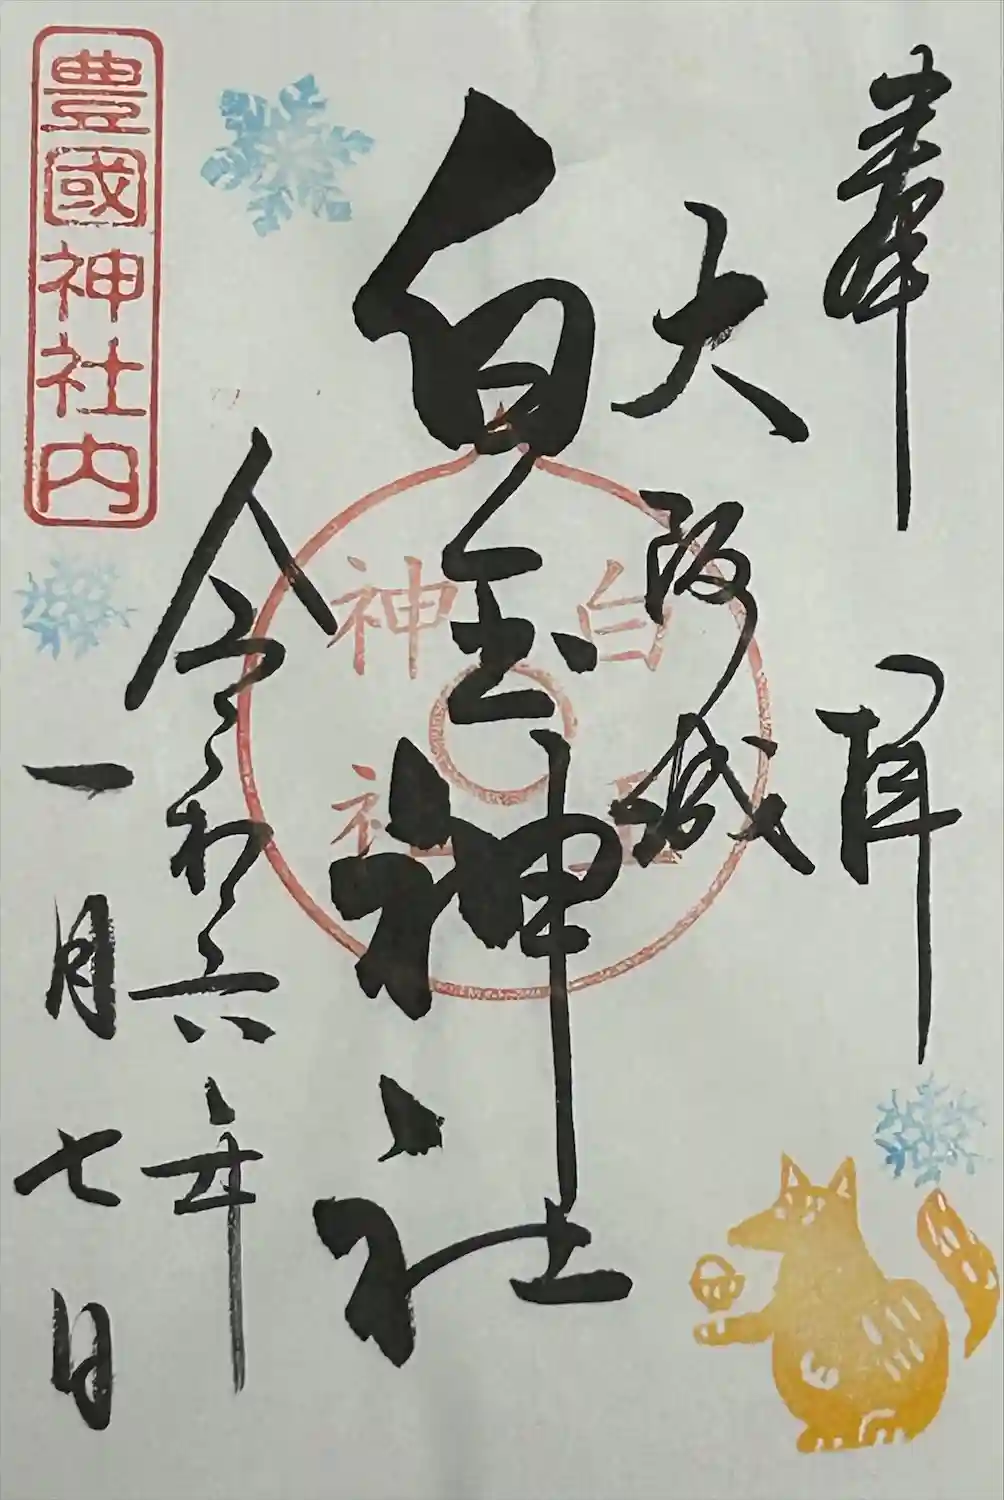 奉拝
大阪城
白玉神社
白玉
神社
令和六年
一月七日
豊國神社内